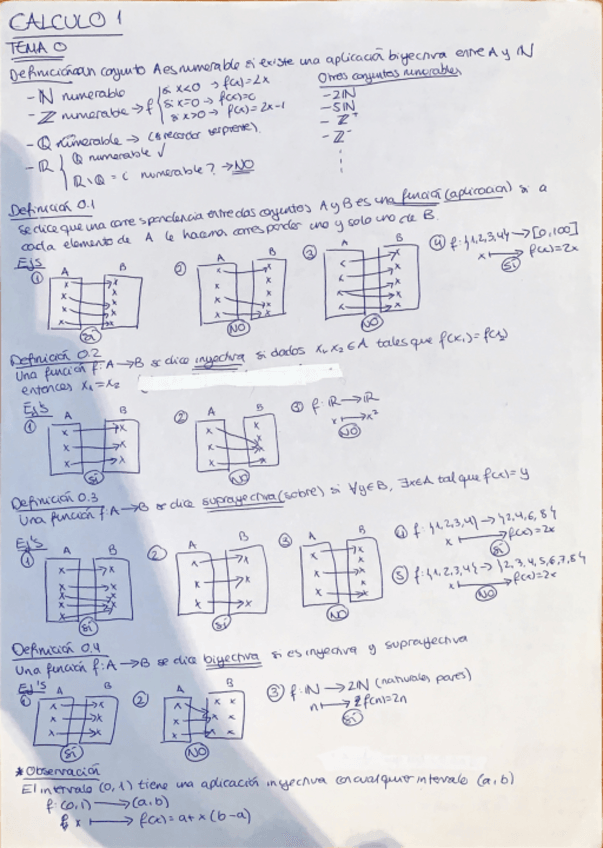 CALCULO 1
TEMA 0
Definición un conjunto A es numerable si existe una aplicación biyectiva entre A y ℕ
- ℕ numerable
- ℤ numerable → f { si x<0 → f(x)=2x
si x=0 → f(x)=0
si x>0 → f(x)=2x-1
- ℚ numerable →
- ℝ { ℚ numerable ✓
ℝ\ℚ = numerable? → NO
Otros conjuntos numerables
- 2ℕ
- 5ℕ
- ℤ⁺
- ℤ⁻
Definición 0.1
Se dice que una correspondencia entre dos conjuntos A y B es una función (aplicación) si a
cada elemento de A le hacemos corresponder uno y solo uno de B.
EJ'S
① A B
Sí
② NO
③ A B
NO
④ f: {1,2,3,4} → [0,100]
x ↦ f(x)=2x
Sí
Definición 0.2
Una función f: A → B se dice inyectiva si dados x₁, x₂ ∈ A tales que f(x₁)=f(x₂)
entonces x₁=x₂
EJ'S
① A B
Sí
② A B
NO
③ f: ℝ → ℝ
x ↦ x²
NO
Definición 0.3
Una función f: A → B se dice suprayectiva (sobre) si ∀y∈B, ∃x∈A tal que f(x)=y
EJ'S
① A B
Sí
② A B
Sí
③ A B
NO
④ f: {1,2,3,4} → {2,4,6,8}
x ↦ f(x)=2x
Sí
⑤ f: {1,2,3,4} → {2,3,4,5,6,7,8}
x ↦ f(x)=2x
NO
Definición 0.4
Una función f: A → B se dice biyectiva si es inyectiva y suprayectiva
EJ'S
① A B
Sí
② A B
NO
③ f: ℕ → 2ℕ (naturales pares)
n ↦ f(n)=2n
Sí
* Observación
El intervalo (0,1) tiene una aplicación inyectiva con cualquier intervalo (a,b)
f: (0,1) → (a,b)
x ↦ f(x)=a+x(b-a)